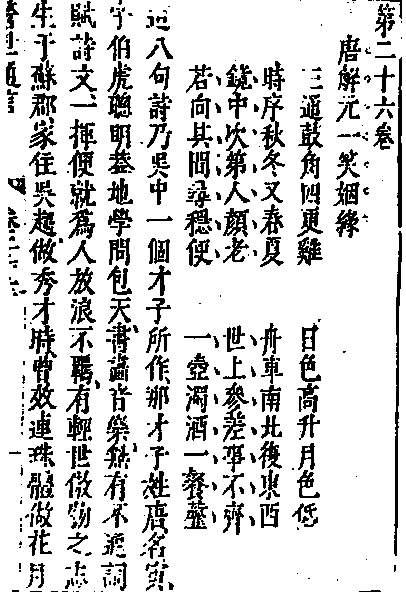 第二十六卷
唐解元一笑姻緣
三通鼓角四更雞　日色高升月色低
時序秋冬又春夏　舟車南北復東西
鏡中次第人顏老　世上參差事不齊
若向其間尋穩便　一壺濁酒一餐虀
這八句詩乃吳中一個才子所作那才子姓唐名寅
字伯虎聰明蓋地學問包天書畫音樂無有不通詞
賦詩文一揮便就爲人放浪不羈有輕世傲物之志
生于蘇郡家住吳趨做秀才時曾效連珠體做花月
警世通言　卷二十六